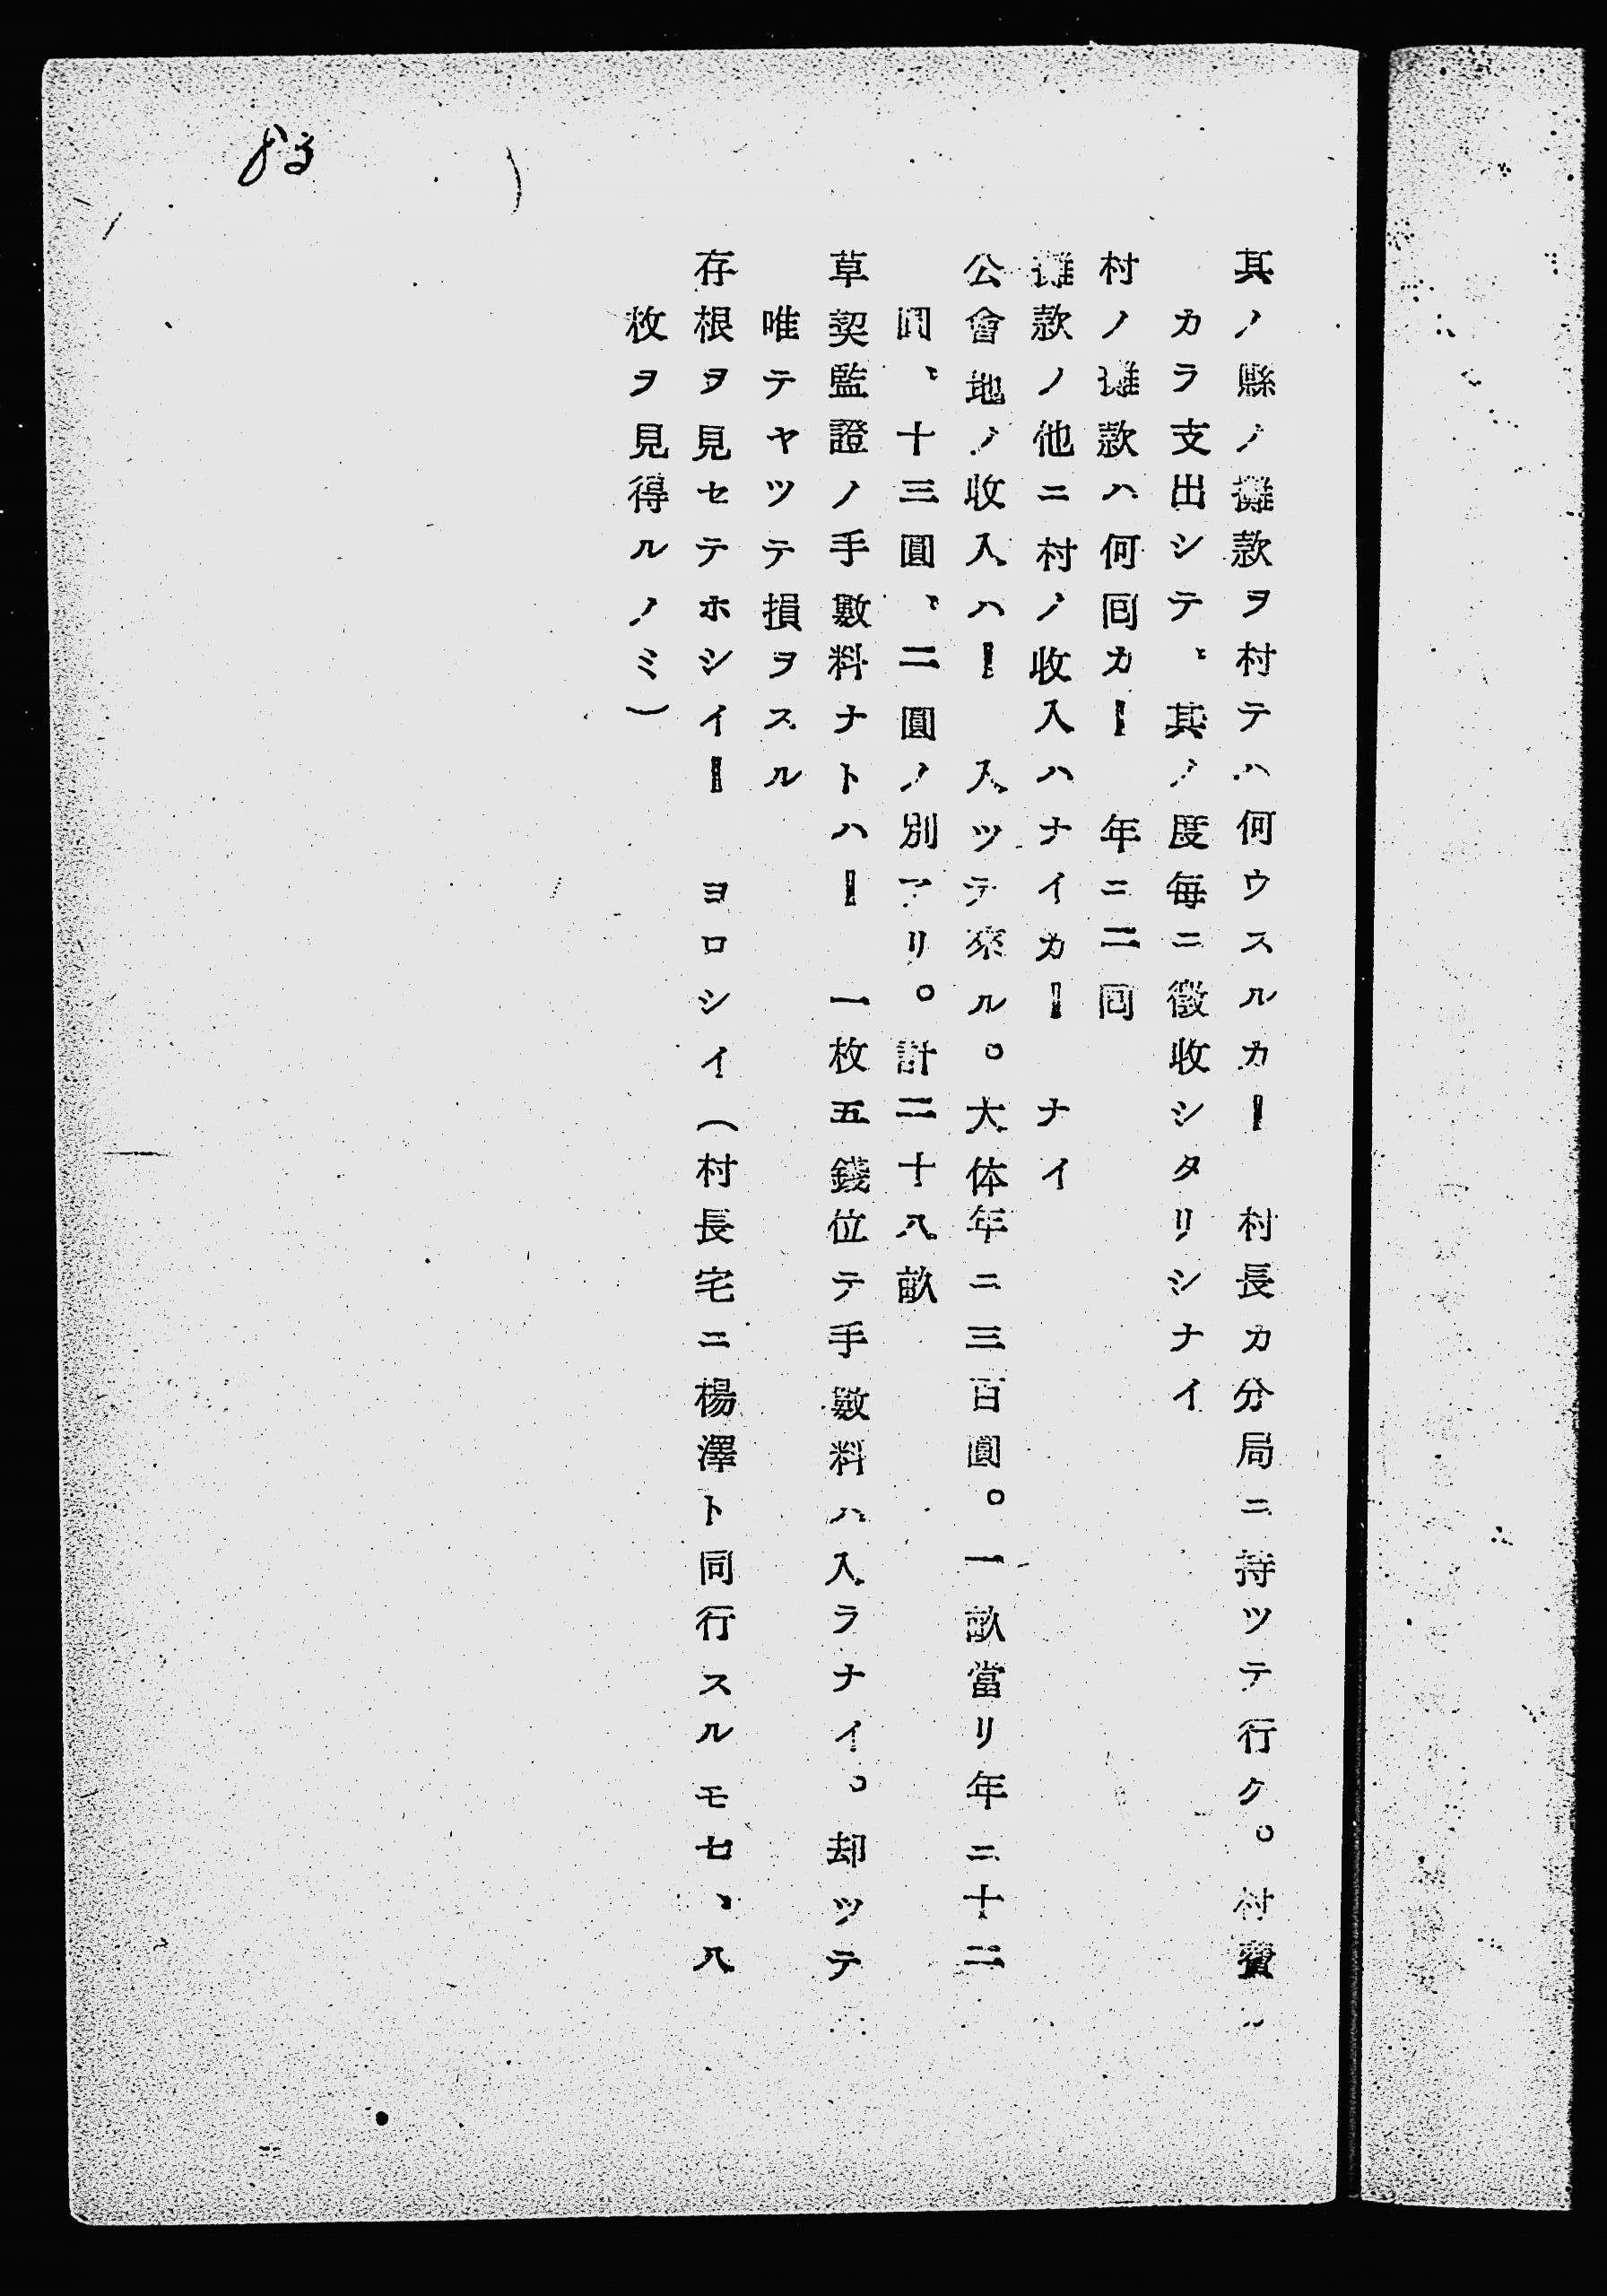 其ノ縣ノ攤款ヲ村テハ何ウスルカー　村長カ分局ニ持ツテ行ク。村費
カラ支出シテ、其ノ度每ニ徵收シタリシナイ
村ノ攤款ハ何回カー　年ニ二回
攤款ノ他ニ村ノ收入ハナイカー　ナイ
公會地ノ收入ハー　入ツテ來ル。大体年ニ三百圓。一畝當リ年ニ十二
圓、十三圓、二圓ノ別アリ。計二十八畝
草契監證ノ手數料ナトハー　一枚五錢位テ手數料ハ入ラナイ。却ツテ
唯テヤツテ損ヲスル
存根ヲ見セテホシイー　ヨロシイ（村長宅ニ楊澤ト同行スルモ七、八
枚ヲ見得ルノミ）
83